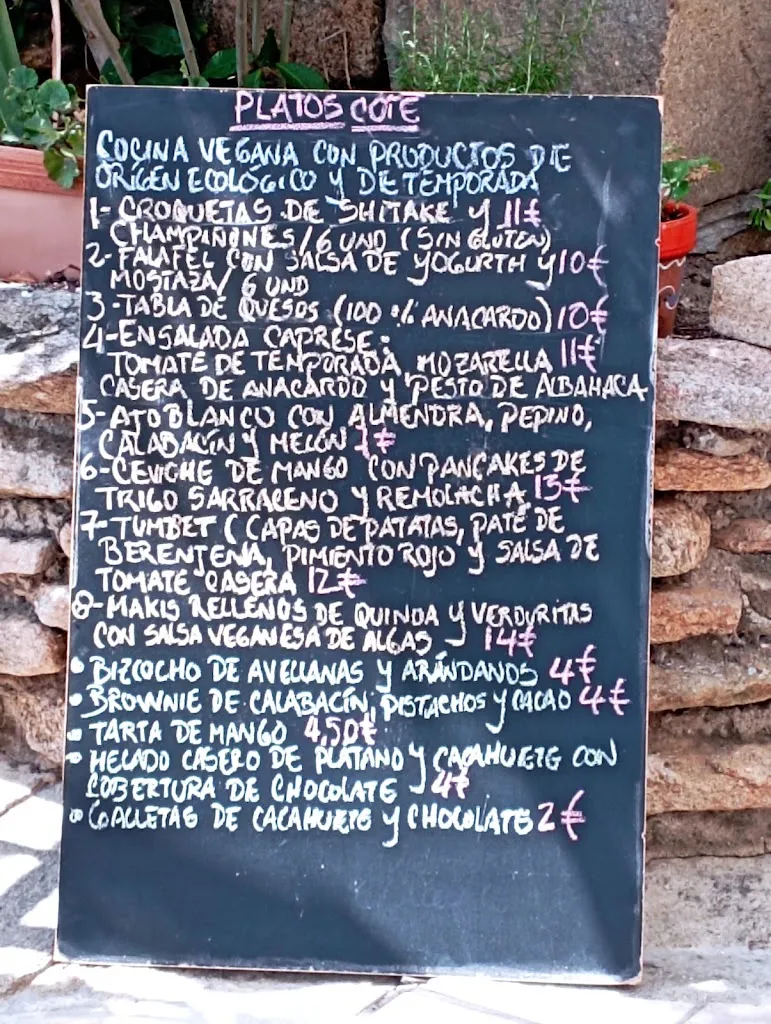 PLATOS COTE
COCINA VEGANA CON PRODUCTOS DE
ORIGEN ECOLÓGICO Y DE TEMPORADA
1- CROQUETAS DE SHITAKE Y 11€
CHAMPIÑONES/6 UND (SIN GLUTEN)
2- FALAFEL CON SALSA DE YOGURTH Y 10€
MOSTAZA/ 6 UND
3-TABLA DE QUESOS (100 % ANACARDO) 10€
4-ENSALADA CAPRESE:
TOMATE DE TEMPORADA, MOZARELLA 11€
CASERA DE ANACARDO Y PESTO DE ALBAHACA
5- AJOBLANCO CON ALMENDRA, PEPINO,
CALABACÍN Y MELÓN
6-CEVICHE DE MANGO CON PANCAKES DE
TRIGO SARRACENO Y REMOLACHA 13€
7-TUMBET (CAPAS DE PATATAS, PATÉ DE
BERENJENA, PIMIENTO ROJO Y SALSA DE
TOMATE CASERA 12€
8-MAKIS RELLENOS DE QUINOA Y VERDURITAS
CON SALSA VEGANESA DE ALGAS 14€
• BIZCOCHO DE AVELLANAS Y ARÁNDANOS 4€
• BROWNIE DE CALABACÍN, PISTACHOS Y CACAO 4€
• TARTA DE MANGO 4,50€
• HELADO CASERO DE PLATANO Y CACAHUETE CON
COBERTURA DE CHOCOLATE 4€
• GALLETAS DE CACAHUETE Y CHOCOLATE 2€